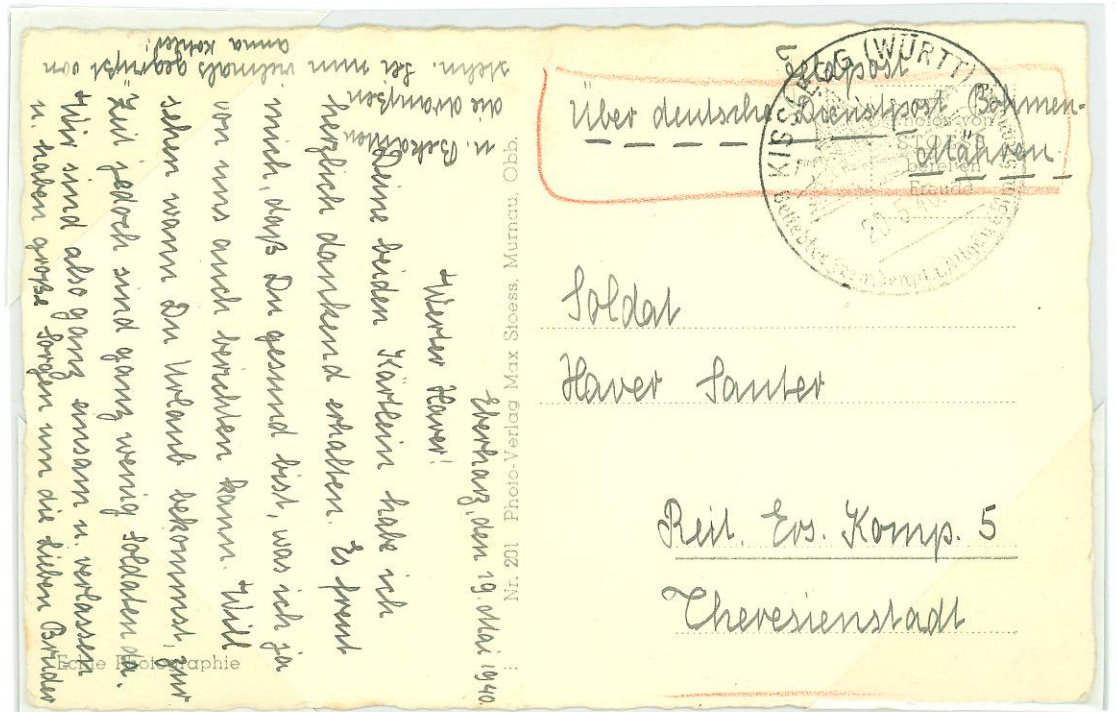 Feldpost
Über deutsche Dienstpost Böhmen-
Mähren
KISSLEGG (WÜRTT)
Soldat
Xaver Sauter
Reit. Ers. Komp. 5
Theresienstadt
Nr. 201 Photo-Verlag Max Stoess, Murnau, Obb.
Echte Photographie
Eberharz, den 19. Mai 1940.
Werter Xaver!
Deine beiden Kärtlein habe ich
herzlich dankend erhalten. Es freut
mich, daß Du gesund bist, was ich ja
von uns auch berichten kann. Will
sehen wann Du Urlaub bekommst, zur
Zeit jedoch sind ganz wenig Soldaten da.
Wir sind also ganz einsam u. verlassen
u. haben große Sorgen um die lieben Brüder
u. Bekannten
die draußen
stehn. Sei nun vielmals gegrüßt von
Anna